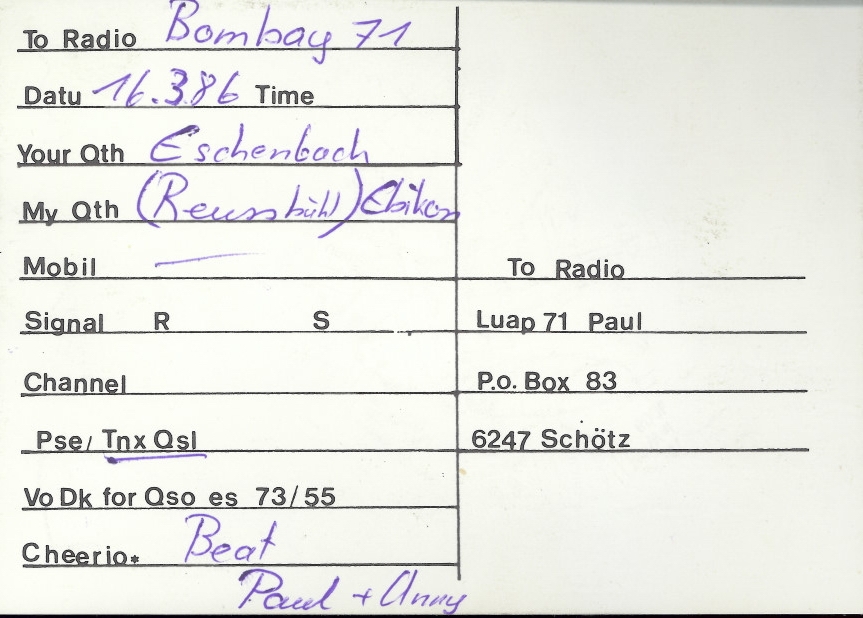 To Radio Bombay 71
Datu 16.3.86 Time
Your Qth Eschenbach
My Qth (Reussbühl) Ebikon
Mobil —
Signal R S
Channel
Pse/ Tnx Qsl
Vo Dk for Qso es 73/55
Cheerio* Beat
Paul + Anny
To Radio
Luap 71 Paul
P.o. Box 83
6247 Schötz